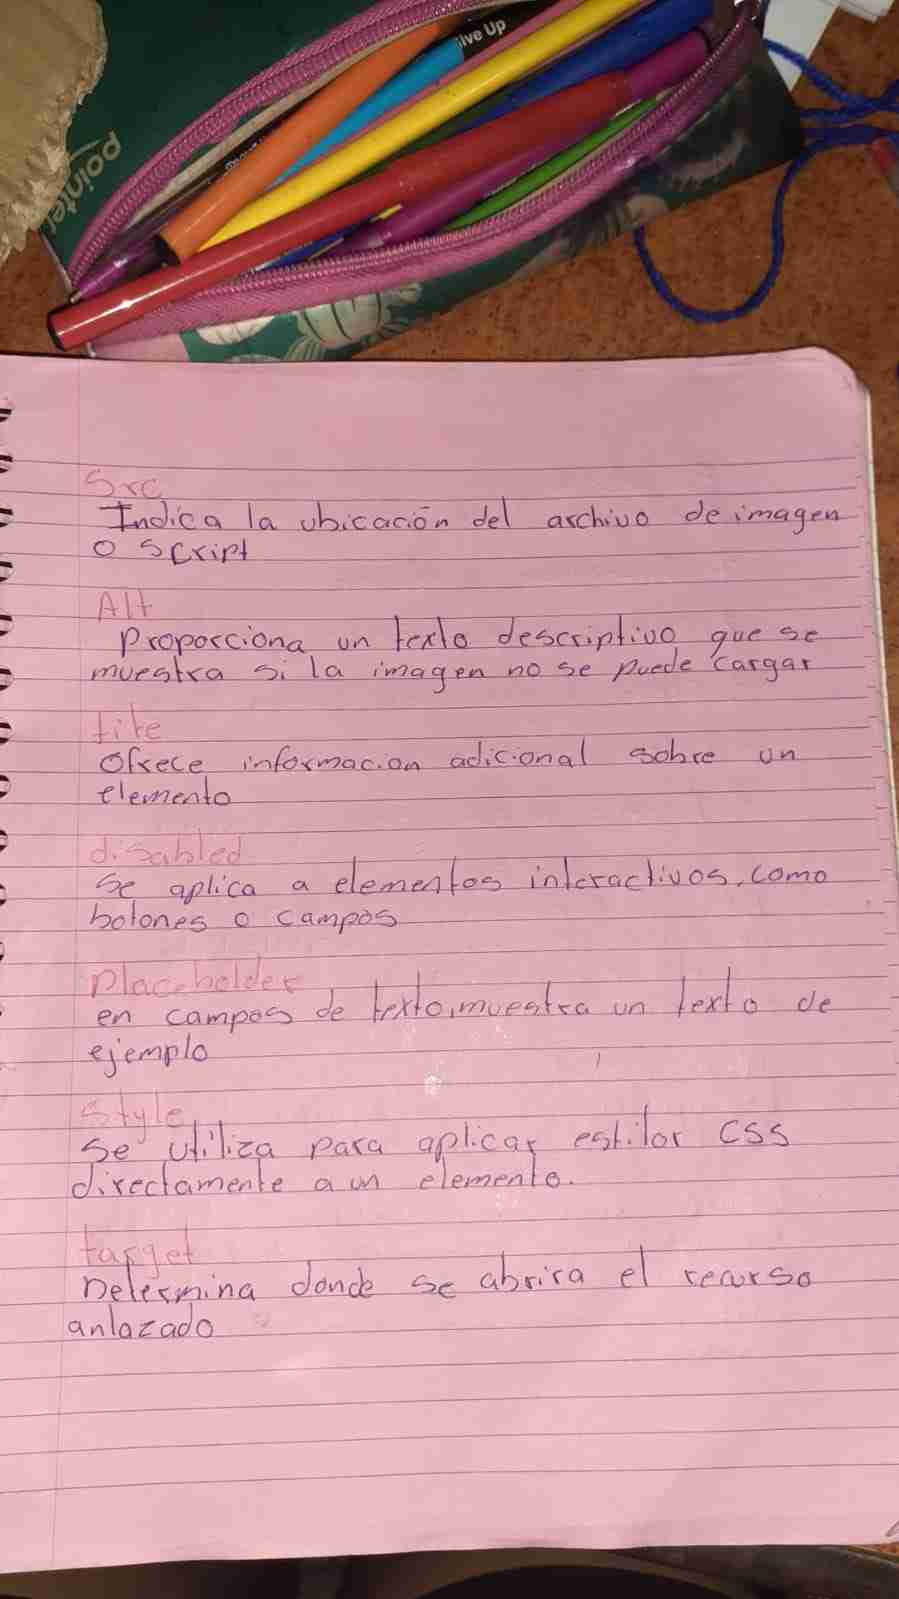 ive Up
pointer
Src
Indica la ubicación del archivo de imagen
o script
Alt
Proporciona un texto descriptivo que se
muestra si la imagen no se puede cargar
tite
Ofrece informacion adicional sobre un
elemento
disabled
se aplica a elementos interactivos, como
botones o campos
Placeholder
en campos de texto, muestra un texto de
ejemplo
Style
Se utiliza para aplicar estilor CSS
directamente a un elemento.
target
Determina donde se abrira el recurso
anlazado